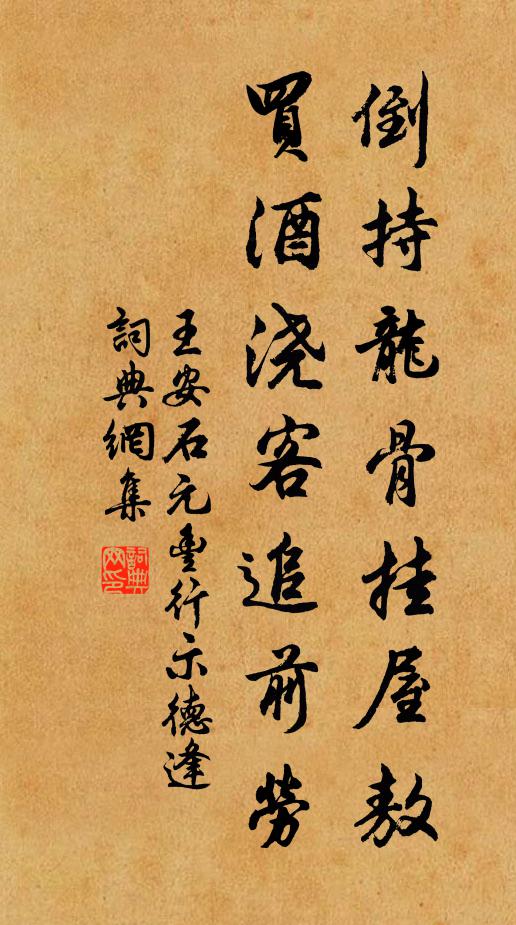 倒持龍骨挂屋敖
買酒浇客追前勞
王安石元豐行示德逢
詞典網集
詞典網印